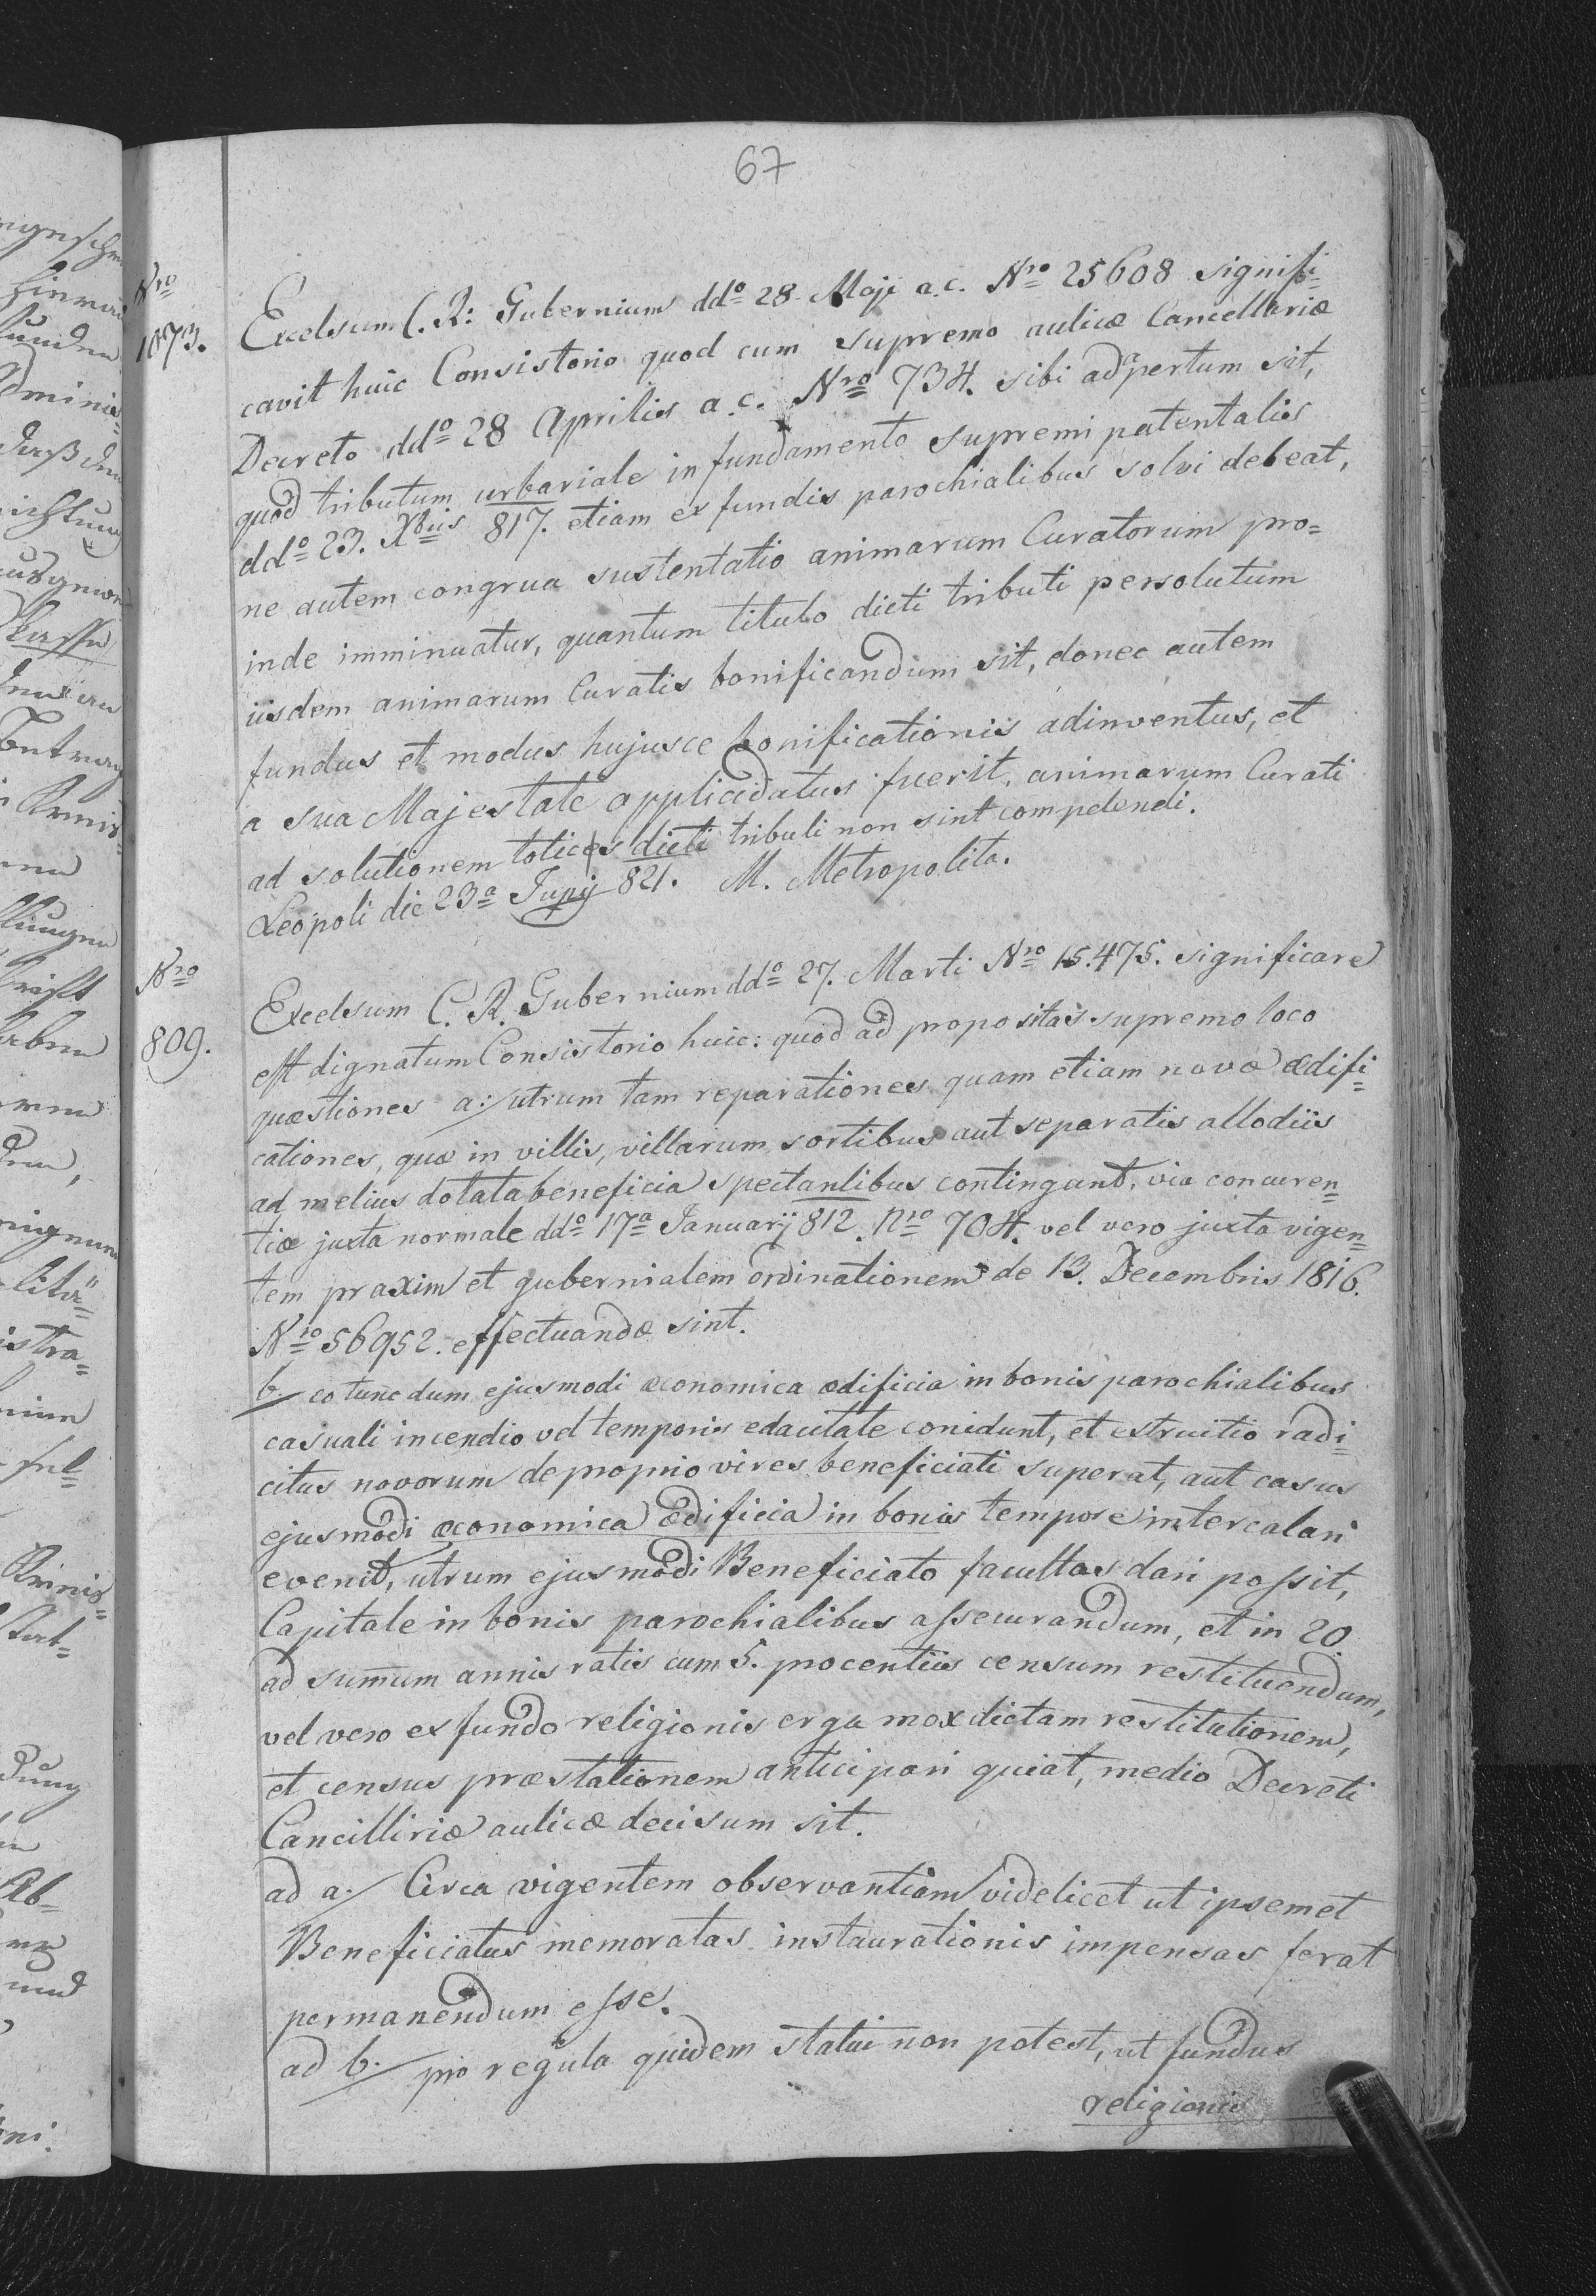 67
Nro
1073.
Excelsum C. R: Gubernium ddo 28. Maji a. c. Nro 25608 signifi=
cavit huic Consistorio quod cum supremo aulicæ Cancellariæ
Decreto ddo 28 Aprilis a. c. Nro 734. sibi adpertum sit,
quod tributum urbariale in fundamento supremi patentalis
ddo 23. Xbris 817. etiam ex fundis parochialibus solvi debeat,
ne autem congrua sustentatio animarum Curatorum pro=
inde imminuatur, quantum titulo dicti tributi persolutum
iisdem animarum Curatis bonificandum sit, donec autem
fundus et modus hujusce bonificationis adinventus, et
a sua Majestate applicidatus fuerit, animarum Curati
ad solutionem toties dicti tributi non sint compelendi.
Leopoli die 23a Junij 821. M. Metropolita.
Nro
809.
Excelsum C. R. Gubernium ddo 27. Marti Nro 15.475. significare
est dignatum Consistorio huic: quod ad propositas supremo loco
quæstiones a:/ utrum tam reparationes quam etiam novæ ædifi=
cationes, quæ in villis, villarum sortibus aut separatis allodiis
ad melius dotata beneficia spectantibus contingunt, via concuren=
tiæ juxta normale ddo 17a Januarij 812. Nro 704. vel vero juxta vigen=
tem praxim et gubernialem ordinationem de 13. Decembris 1816.
Nro 56952. effectuandæ sint.
b./ eo tunc dum ejusmodi æconomica ædificia in bonis parochialibus
casuali incendio vel temporis edacitate conidunt, et extructio radi=
citus novorum de proprio vires beneficiati superat, aut casus
ejusmodi æconomica ædificia in bonis tempore intercalari
evenit, utrum ejusmodi Beneficiato facultas dari possit,
Capitale in bonis parochialibus assecurandum, et in 20
ad summum annis ratis cum 5. procentiis censum restituendum,
vel vero ex fundo religionis erga mox dictam restitutionem,
et census præstationem anticipari quiat, medio Decreti
Cancilliriæ aulicæ decisum sit.
ad a./ Circa vigentem observantiam videlicet ut ipsemet
Beneficiatus memoratas instaurationis impensas ferat
permanendum esse.
ad b./ pro regula quidem statui non potest, ut fundus
religionis